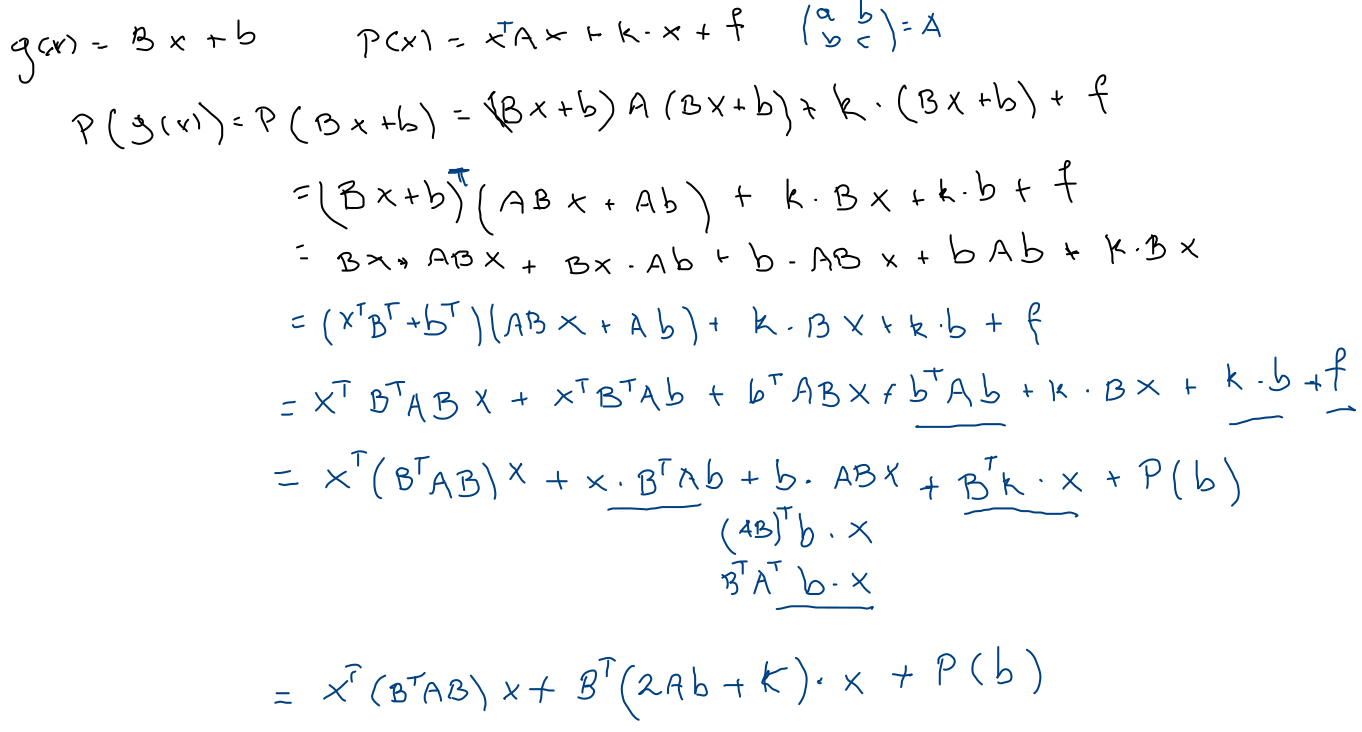 g(x) = Bx + b    P(x) = xᵀAx + k · x + f    (a b; b c) = A
P(g(x)) = P(Bx+b) = (Bx+b) A (Bx+b) + k · (Bx+b) + f
= (Bx+b)ᵀ(ABx + Ab) + k · Bx + k · b + f
= Bx · ABx + Bx · Ab + b · ABx + bAb + k · Bx
= (xᵀBᵀ + bᵀ)(ABx + Ab) + k · Bx + k · b + f
= xᵀBᵀABx + xᵀBᵀAb + bᵀABx + bᵀAb + k · Bx + k · b + f
= xᵀ(BᵀAB)x + x · BᵀAb + b · ABx + Bᵀk · x + P(b)
(AB)ᵀb · x
BᵀAᵀb · x
= xᵀ(BᵀAB)x + Bᵀ(2Ab + k) · x + P(b)